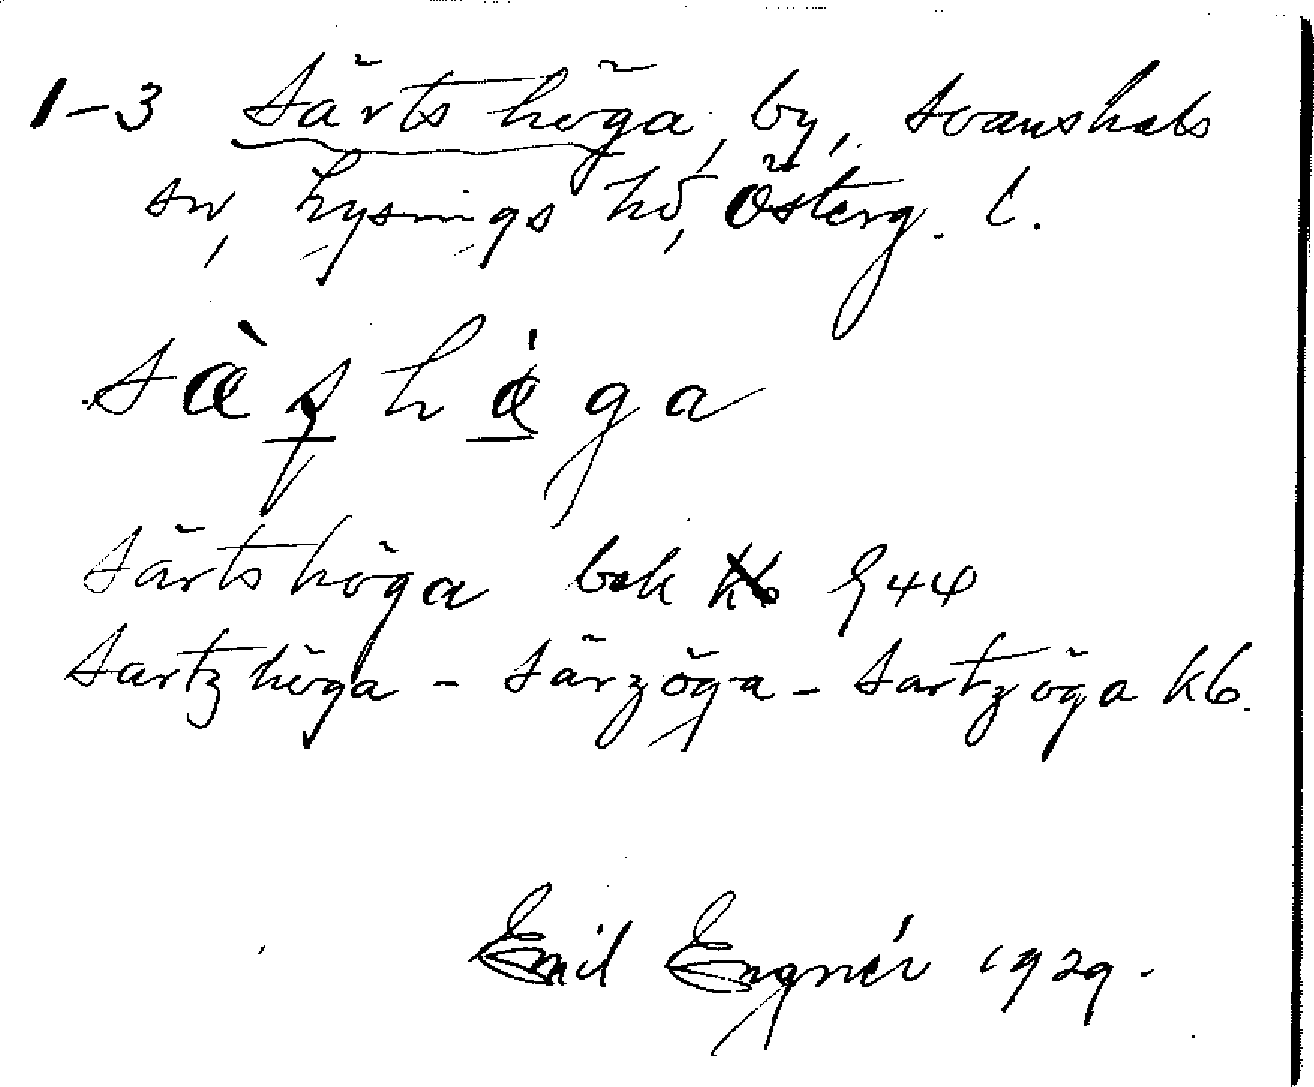 1-3 Särtshöga, by, Svanshals
sn, Lysings hd, Österg. l.
sæ̀ʂhø̀ga
Särtshöga bok 944
Sartzhöga - Särzöga - Sartzöga kb.
Emil Engnér 1929.